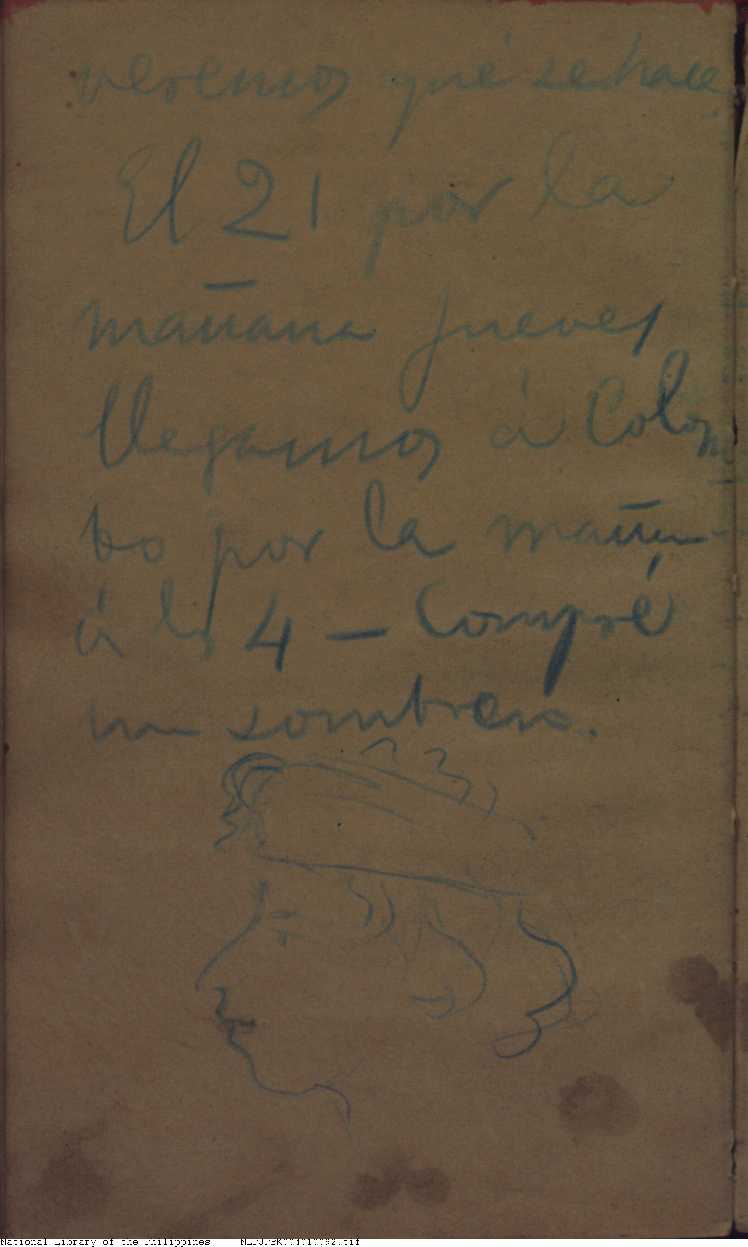 veremos qué se hace.
El 21 por la
mañana jueves
llegamos á Colom
bo por la mañan
á las 4 — Compré
un sombrero.
National Library of the Philippines